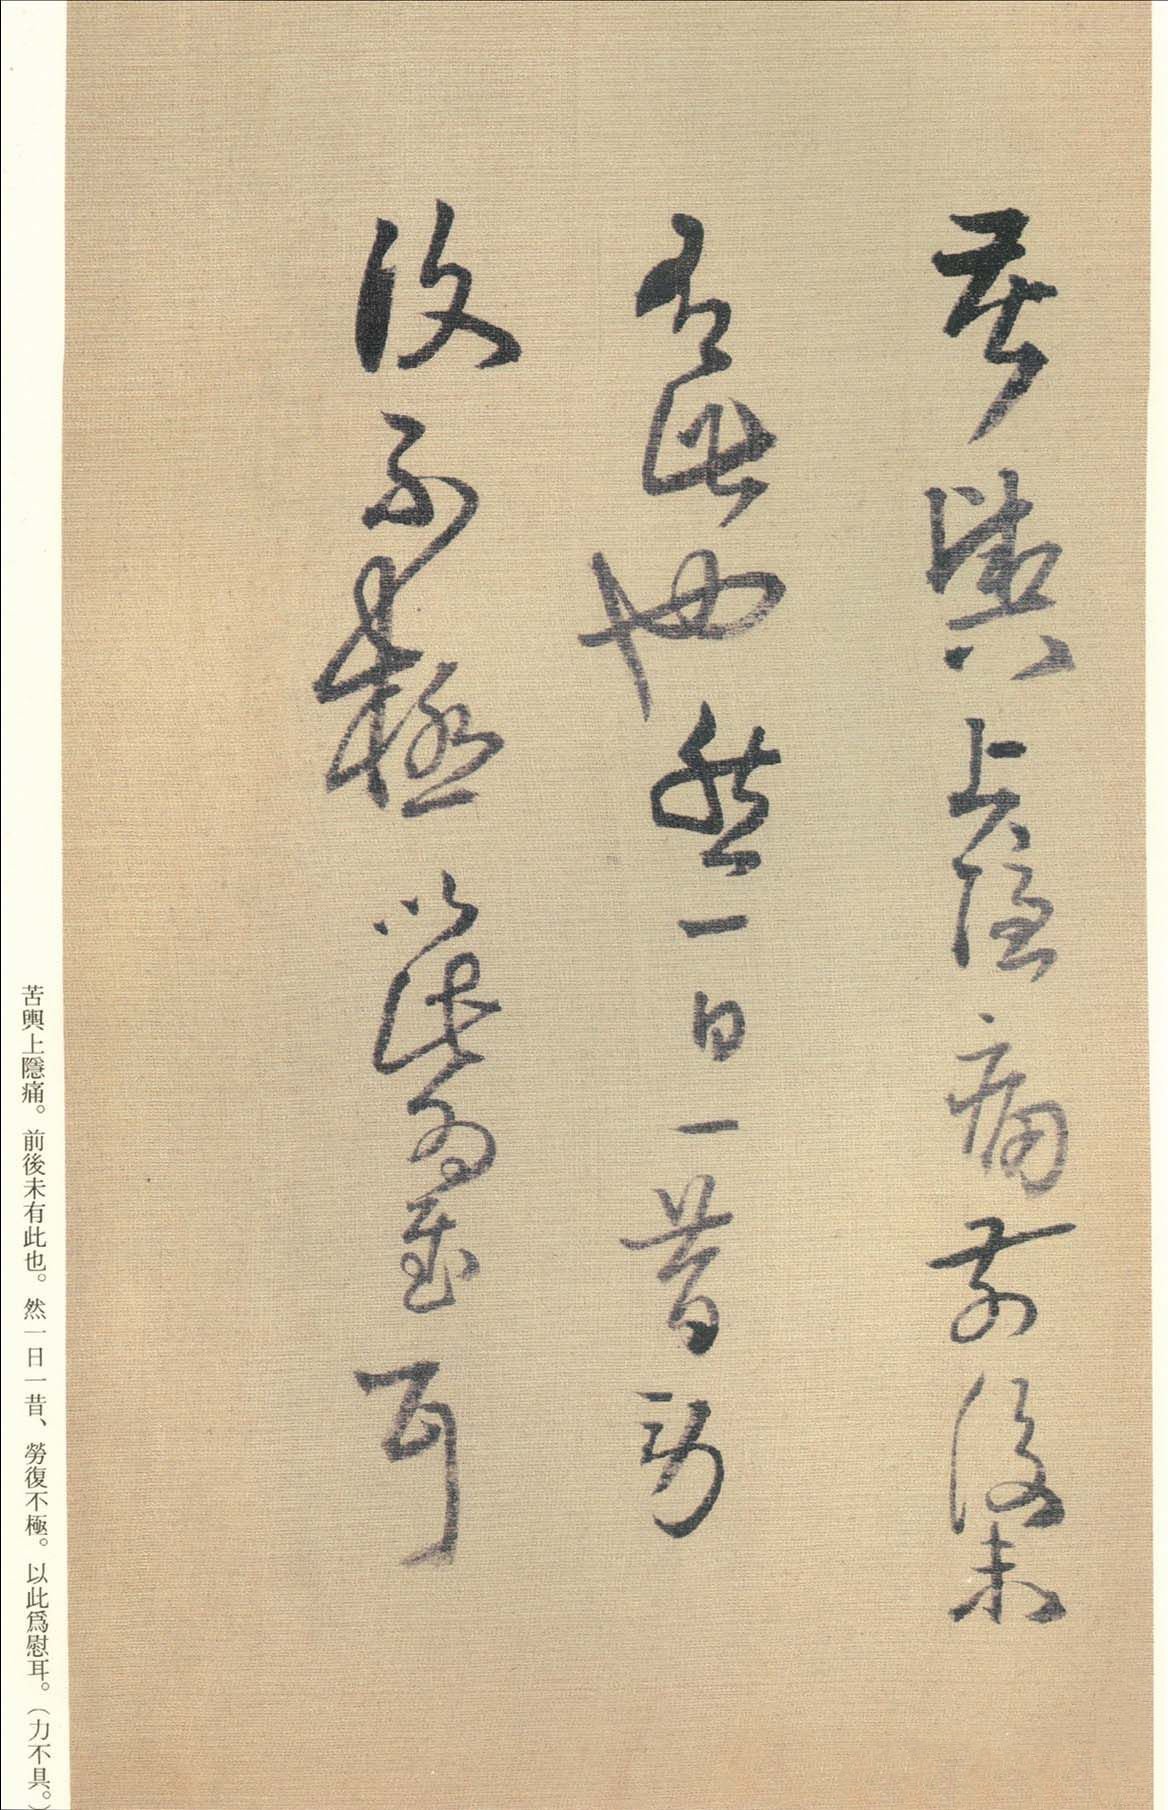 苦輿上隱痛前後未
有此也然一日一昔勞
復不極以此為慰耳
苦輿上隱痛。前後未有此也。然一日一昔、勞復不極。以此爲慰耳。（力不具。）